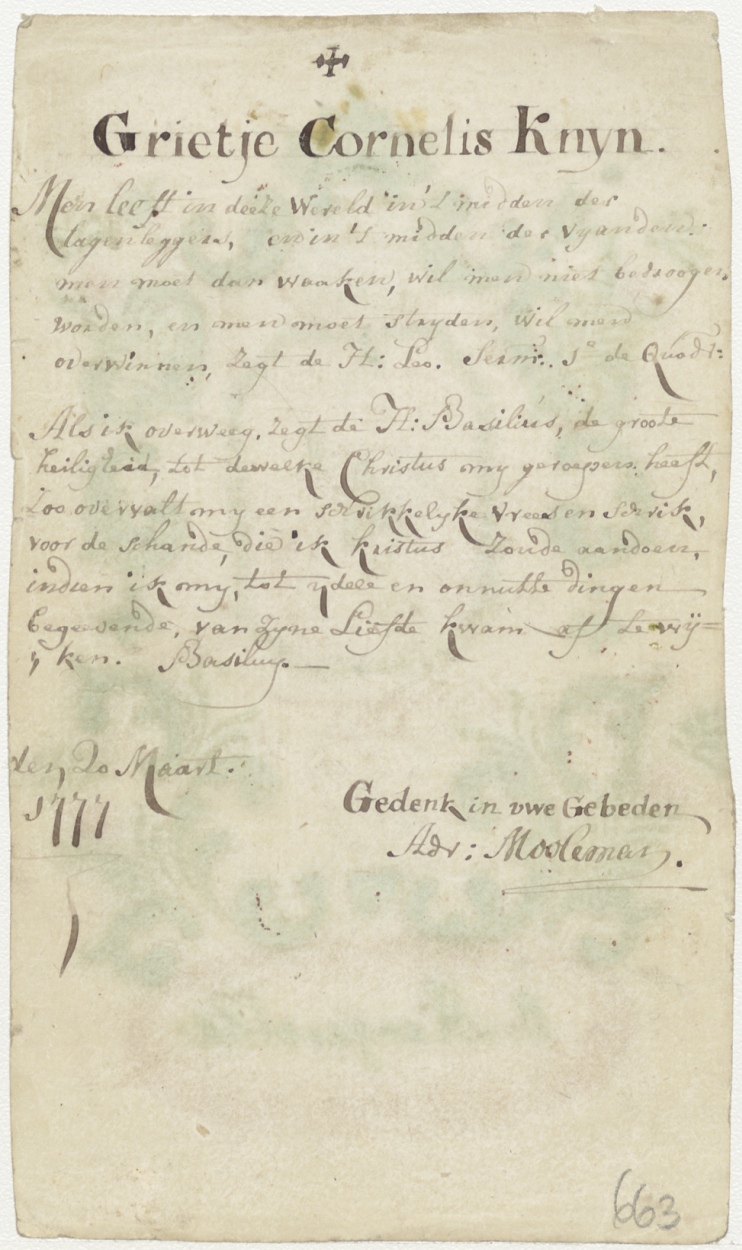 Grietje Cornelis Knyn.
Men leeft in deeze Wereld in't midden der
lagenleggers, en in't midden der vyanden:
men moet dan waaken, wil men niet bedroogen
worden, en men moet stryden, wil men
overwinnen, zegt de H: Leo. Serm. 1º de Quadr:
Als ik overweeg, zegt de H: Basilius, de groote
heiligheid, tot dewelke Christus my geroepen heeft,
zoo overvalt my een schrikkelyke vrees en schrik,
voor de schande, die ik kristus zoude aandoen,
indien ik my, tot ydele en onnutte dingen
begeevende, van zyne Liefde kwam af te wij=
ken. Basilius
den 20 Maart.
1777
Gedenk in uwe Gebeden
Adr: Mooleman.
663